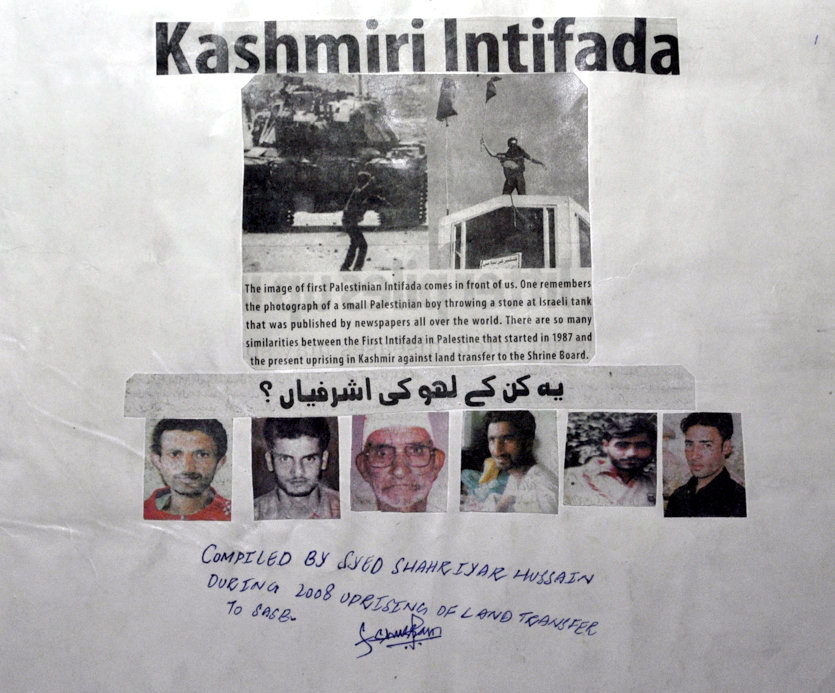 Kashmiri Intifada
The image of first Palestinian Intifada comes in front of us. One remembers
the photograph of a small Palestinian boy throwing a stone at Israeli tank
that was published by newspapers all over the world. There are so many
similarities between the First Intifada in Palestine that started in 1987 and
the present uprising in Kashmir against land transfer to the Shrine Board.
یہ کن کے لہو کی اشرفیاں ؟
COMPILED BY SYED SHAHRIYAR HUSSAIN
DURING 2008 UPRISING OF LAND TRANSFER
TO SASB.